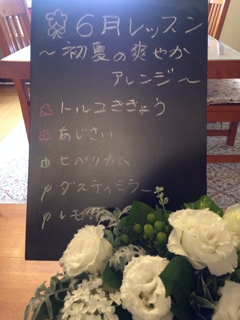 6月レッスン
～初夏の爽やか
アレンジ～
トルコききょう
あじさい
ヒペリカム
ダスティミラー
レモン